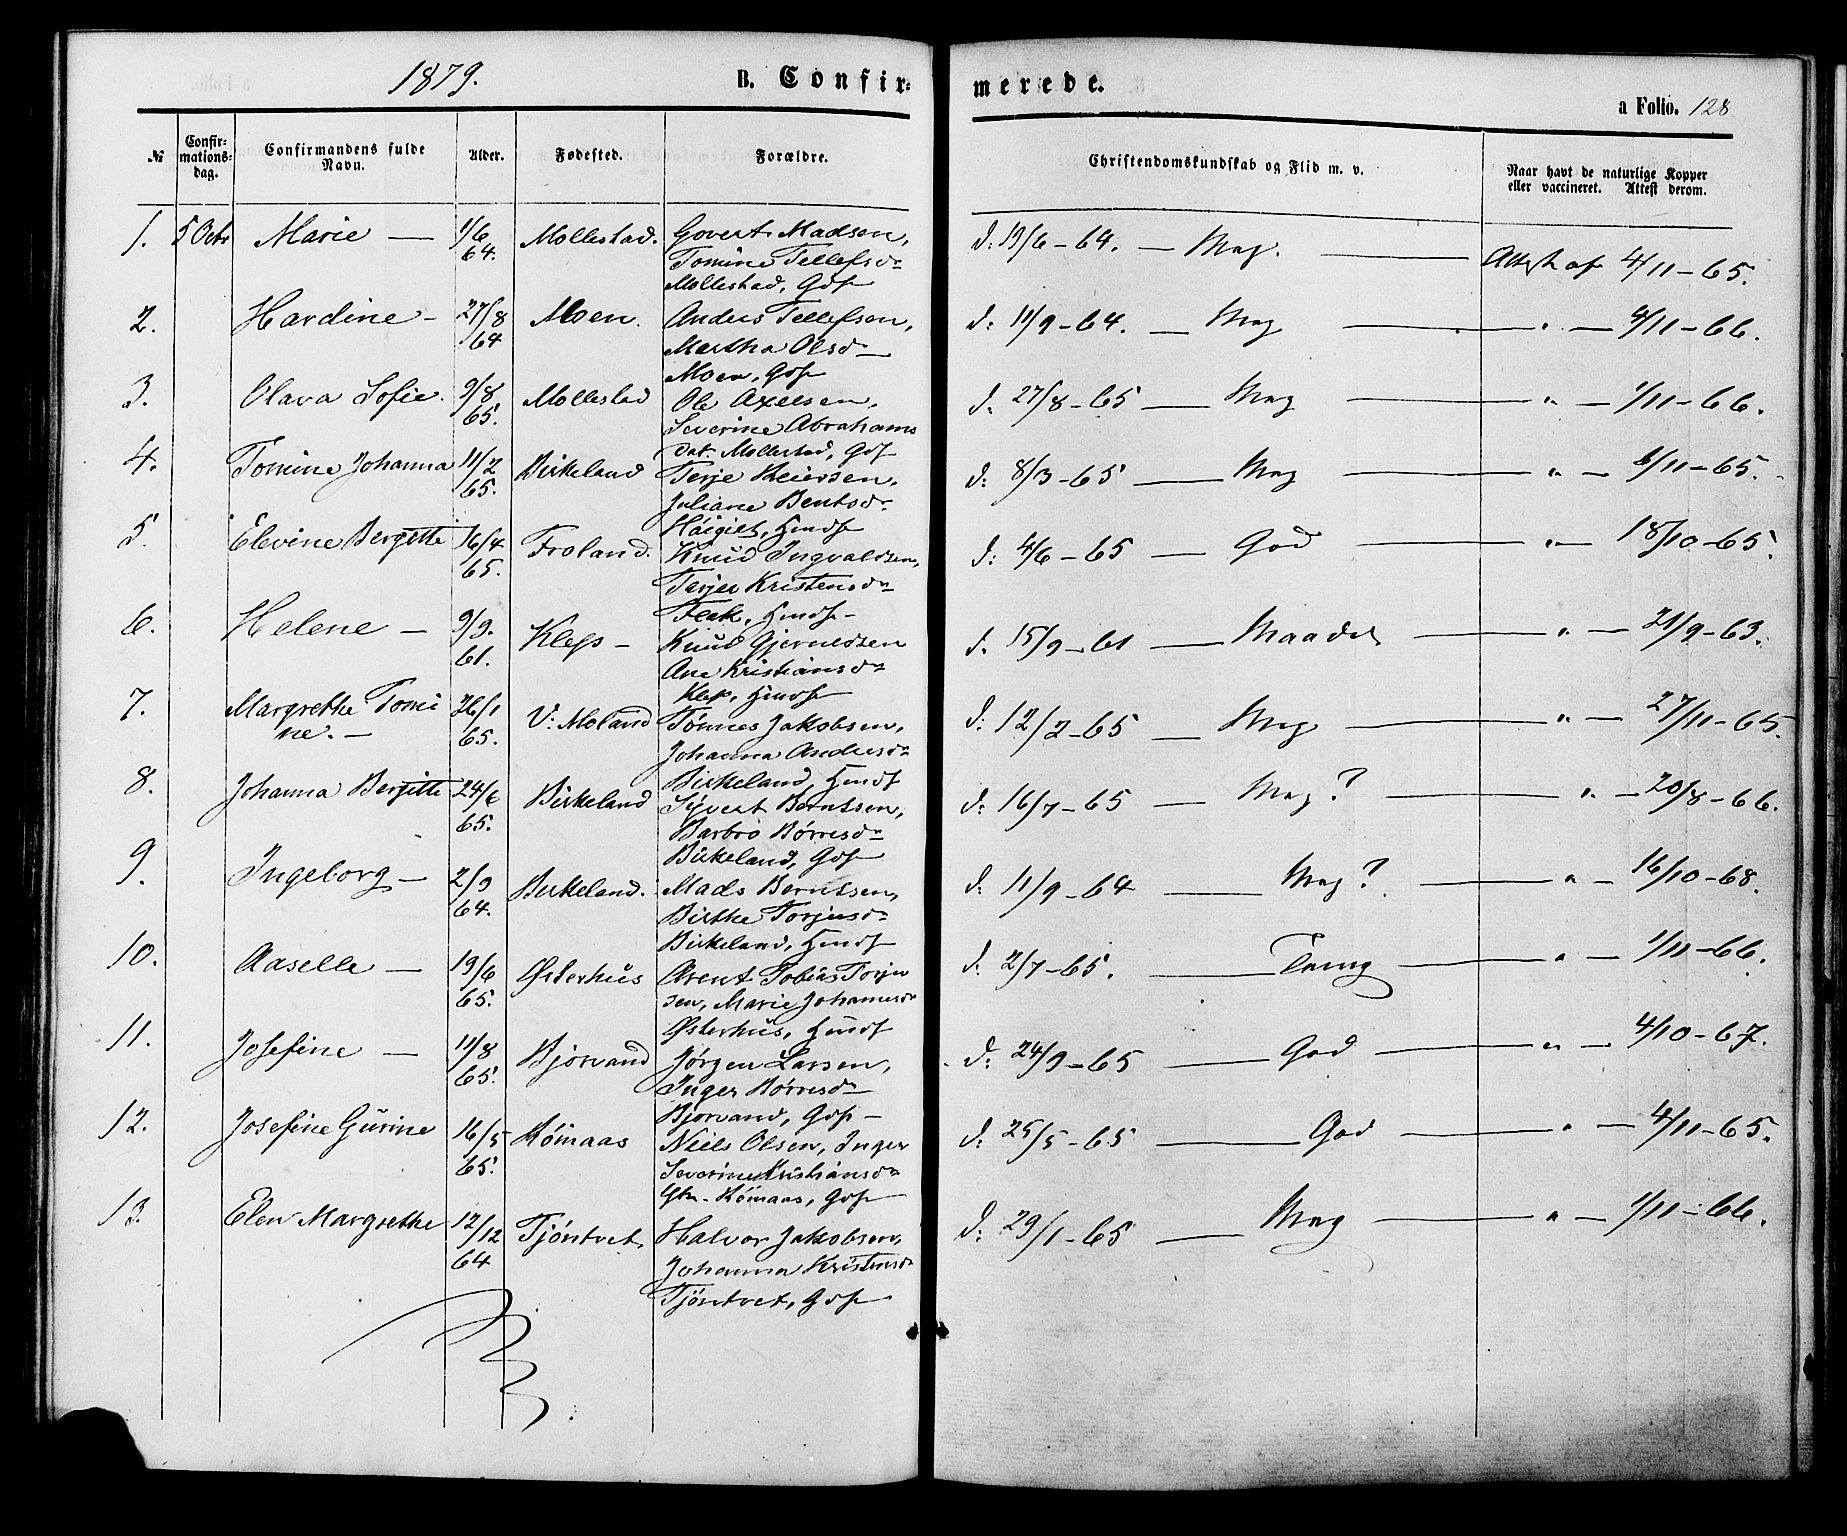 1879. B. Confir- merede.
a Folio. 128
№ Confir-mations-dag. Confirmandens fulde Navn. Alder. Fødested. Forældre. Christendomskundskab og Flid m. v. Naar havt de naturlige Kopper eller vaccineret. Attest derom.
1. 5 Octr Marie — 1/6 Mollestad. Govert Madsen, d: 19/6-64. — Mag. — Attest af 4/11-65.
64. Tomine Tellefsdr
Mollestad, Gdf
2. Hardine - 27/8 Moen. Anders Tellefsen, d: 11/9-64. — Mag — " — 4/11-66.
64 Martha Olsd—
Moen, Gdf
3. Olava Sofie. 9/8 Mollestad Ole Axelsen, d: 27/8-65 — Mag — " — 1/11-66.
65. Severine Abrahams
dat. Mollestad, Gdf
4. Tomine Johanna 11/2 Birkeland Terje Reiersen, d: 8/3-65 — Mag — " — 6/11-65.
65. Juliane Bentsdr
Håigilt, Hmdf
5. Elevine Bergitte 16/4 Froland. Knud Ingvaldsen, d: 4/6-65 — God — " — 18/10-65.
65. Terjer Kristensdr
Flak, Hmdf-
6. Helene — 9/9. Kleps - Knud Gjeruldsen d. 15/9-61 — Maadel — " — 21/9-63.
61. Ane Kristiansdr
Klep, Hmdf
7. Margrethe Tomi 26/1 V: Moland Tønnes Jakobsen, d: 12/2-65 — Mag — " — 27/11-65.
ne. — 65. Johanna Andersdr
Birkeland, Hmdf
8. Johanna Bergitte 24/6 Birkeland Syvert Berntsen, d: 16/7-65 — Mag? — " — 20/8-66.
65. Barbro Børresdr
Birkeland, Gdf
9. Ingeborg — 2/9 Birkeland. Mads Berntsen, d: 11/9-64 — Mag? — " — 16/10-68.
64. Birthe Torjusdr
Birkeland, Hmdf
10. Aaselle — 19/6 Østerhus Arent Tobias Torju d: 2/7-65. — Temg — " — 1/11-66.
65. sen, Marie Johannesdr
Østerhus, Hmdf
11. Josefine — 11/8 Bjorvand Jørgen Larsen, d: 24/9-65 — God — " — 4/10-67.
65. Inger Børresdr
Bjorvand, Gdf-
12. Josefine Gurine 16/5 Rømaas Niels Olsen, Inger d: 25/5-65 — God — " — 4/11-65.
65. Severine Kristiansdr
Rømaas, Gdf
13. Elen Margrethe 12/12 Tjöntvet, Halvor Jakobsen, d: 29/1-65 — Mag — " — 1/11-66.
64 Johanna Kristensdr
Tjöntvet, Gdf